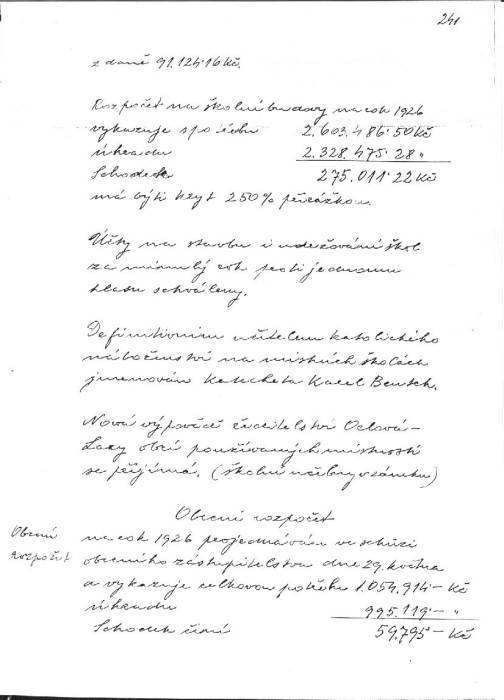 241
z daně 91.124·16 Kč.
Rozpočet na školní budovy na rok 1926
vykazuje spotřebu 2.603.486·50 Kč
úhradu 2.328.475·28 "
Schodek 275.011·22 Kč
má býti kryt 250% přirážkou.
Účty na stavbu i udržování škol
za minulý rok proti jednomu
hlasu schváleny.
Definitivním učitelem katolického
náboženství na místních školách
jmenován katecheta Karel Bensch.
Nová výpověď ředitelství Orlová-
Lazy obcí používaných místností
se přijímá. (školní učebny v zámku)
Obecní rozpočet
Obecní
rozpočet
na rok 1926 projednáván ve schůzi
obecního zastupitelstva dne 29. května
a vykazuje celkovou potřebu 1.054.914·– Kč
úhradu 995.119·– "
Schodek činí 59.795·– Kč